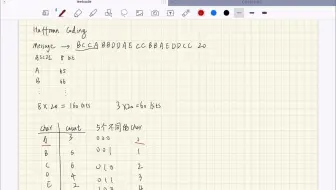 Huffman Coding
message → BCCABBDDAECCBBAEDDCC 20
ASCII 8 bit
A 65
B 66
8 × 20 = 160 bits 3×20=60 bits
char count 5个不同的char
A 3 000
B 5 001 1
C 6 010 2
D 4 011 3
E 2 4